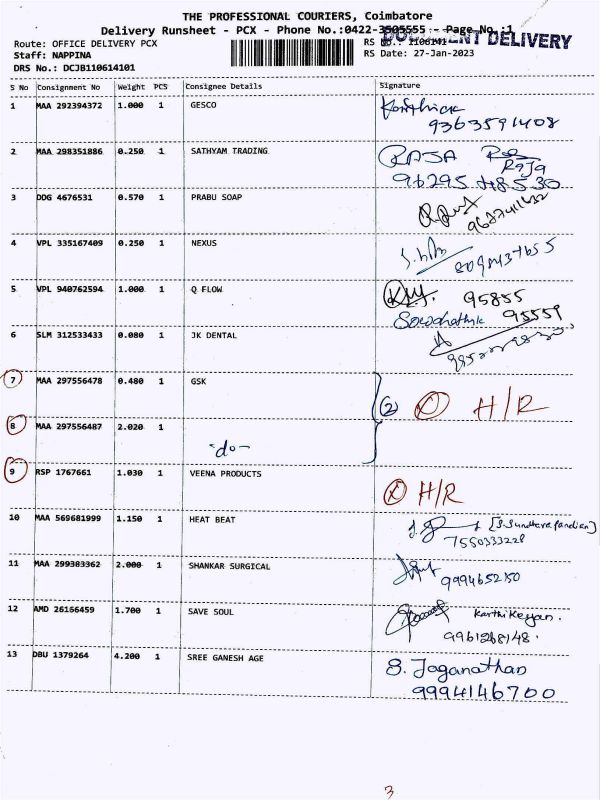 THE PROFESSIONAL COURIERS, Coimbatore
Delivery Runsheet - PCX - Phone No.:0422-3505555 - Page No.:1
DOCUMENT DELIVERY
Route: OFFICE DELIVERY PCX
RS No.: 1106141
Staff: NAPPINA
RS Date: 27-Jan-2023
DRS No.: DCJB110614101
S No Consignment No Weight PCS Consignee Details Signature
1 MAA 292394372 1.000 1 GESCO Karthick
9363591408
2 MAA 298351886 0.250 1 SATHYAM TRADING RAJA
Raja
96295 48530
3 DDG 4676531 0.570 1 PRABU SOAP
4 VPL 335167409 0.250 1 NEXUS
5 VPL 940762594 1.000 1 Q FLOW 95855
95559
6 SLM 312533433 0.080 1 JK DENTAL
7 MAA 297556478 0.480 1 GSK
2 H/R
8 MAA 297556487 2.020 1
-do-
9 RSP 1767661 1.030 1 VEENA PRODUCTS
H/R
10 MAA 569681999 1.150 1 HEAT BEAT
7550333228
11 MAA 299383362 2.000 1 SHANKAR SURGICAL
9994652150
12 AMD 26166459 1.700 1 SAVE SOUL Karthikeyan.
13 DBU 1379264 4.200 1 SREE GANESH AGE S. Jaganathan
9994146700
3